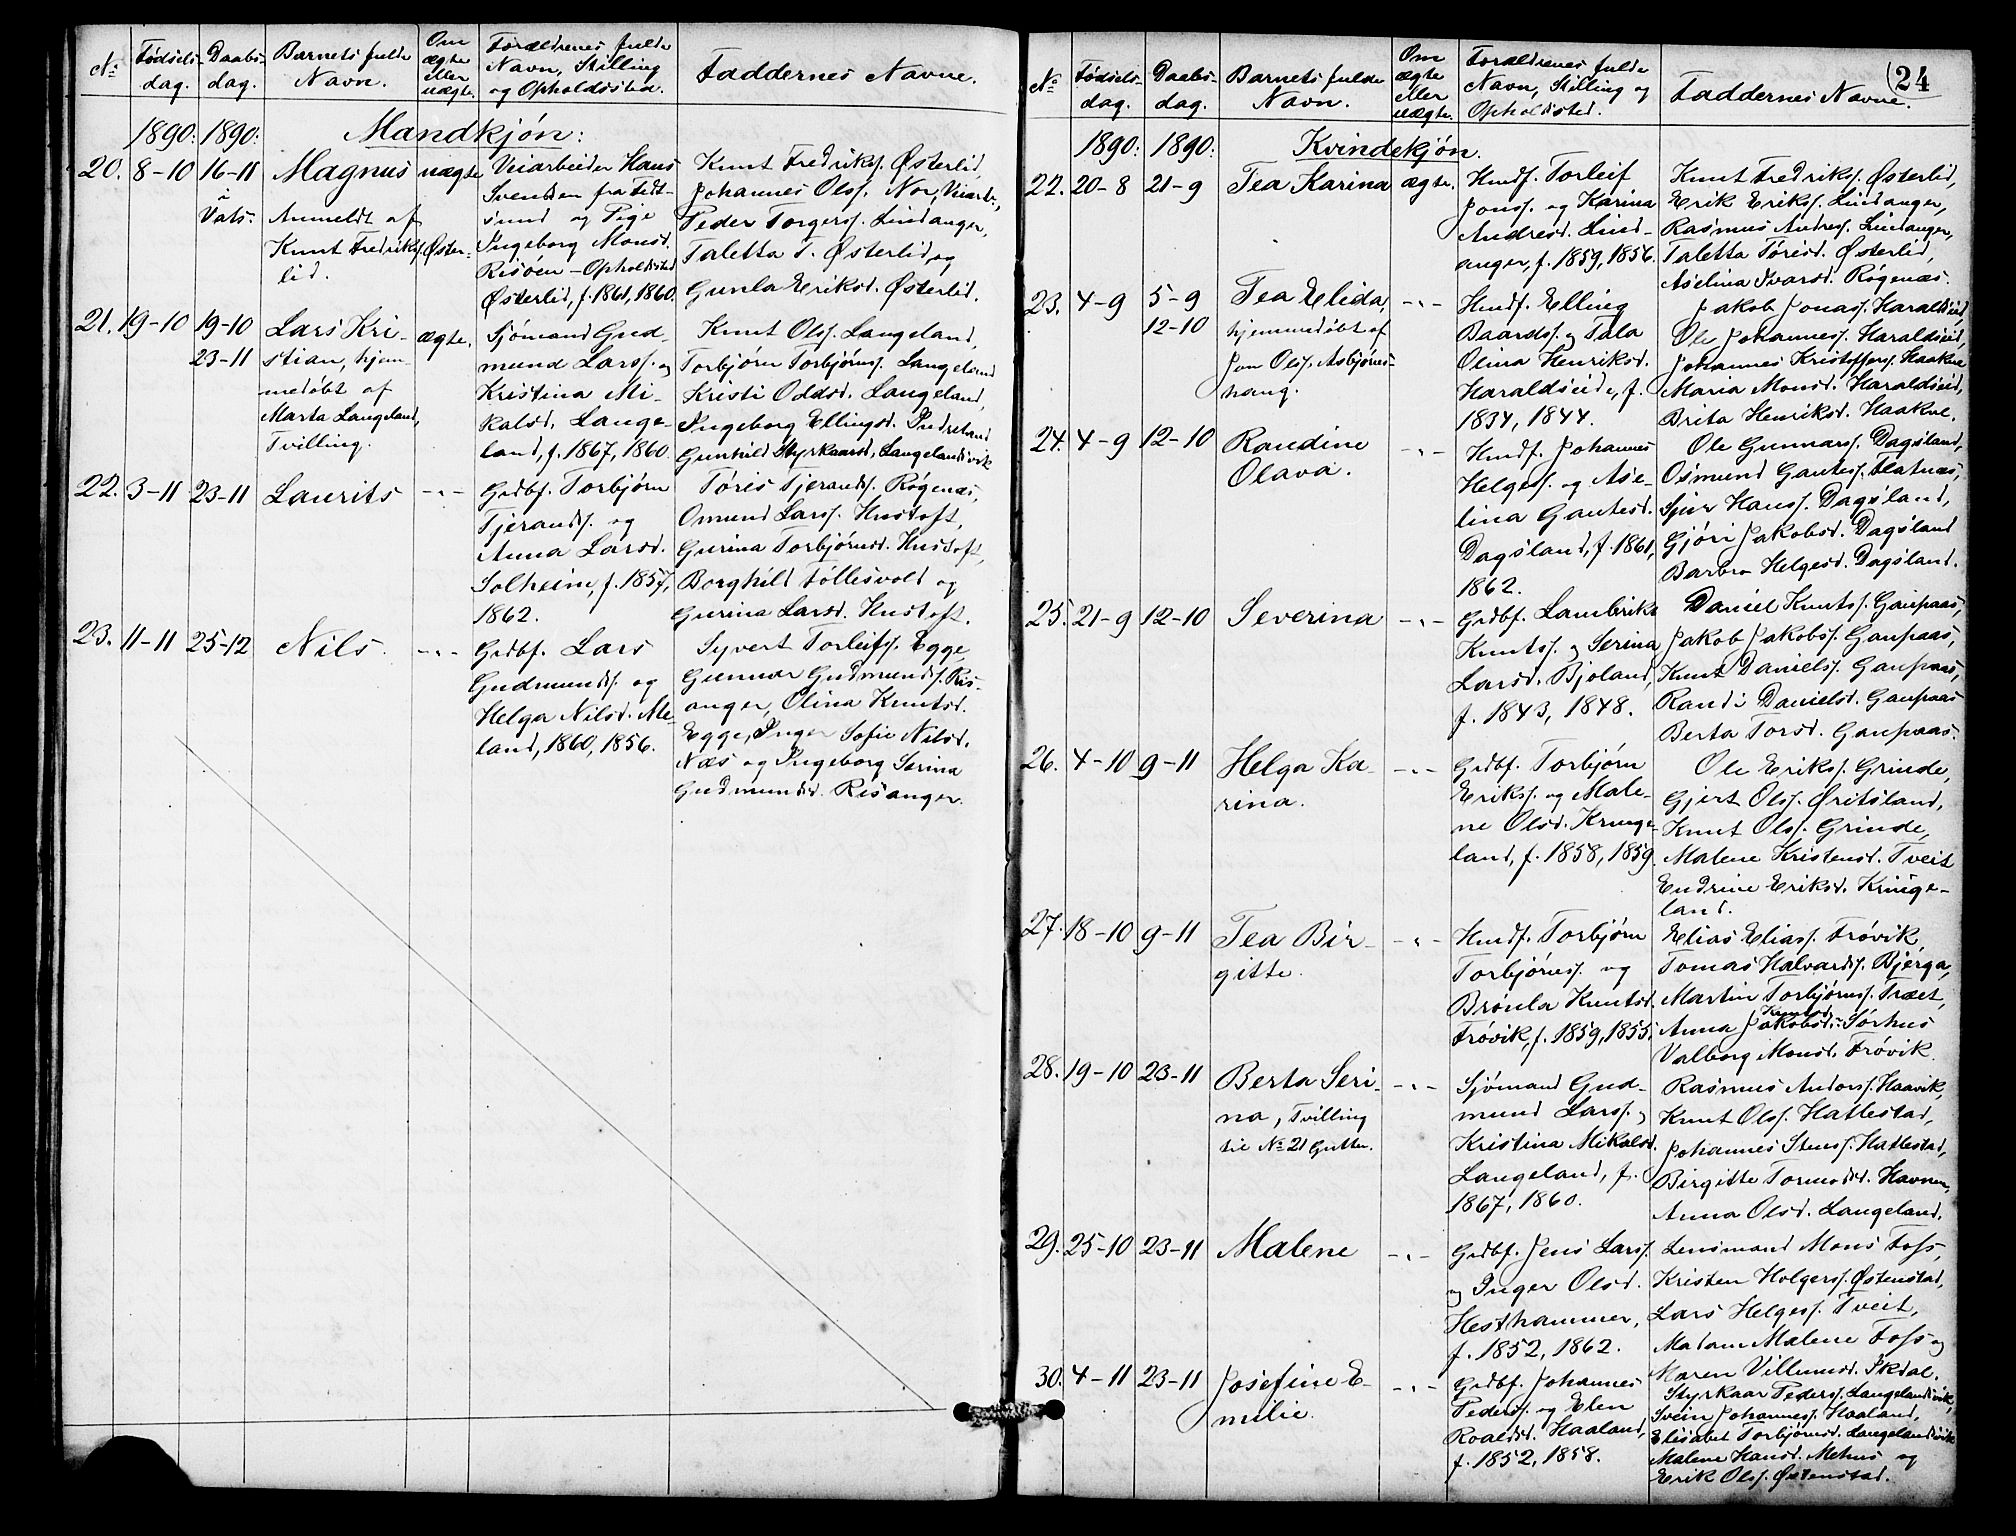 No
Fødsels-
dag.
Daabs-
dag.
Barnets fulde
Navn.
Om
ægte
eller
uægte.
Forældrenes fulde
Navn, Stilling
og Opholdssted.
Faddernes Navne.
1890. 1890. Mandkjøn:
20. 8-10 16-11 Magnus uægte
i
Vats.
Anmeldt af
Knut Fredriks. Øster-
lid.
Veiarbeider Hans
Svendsen fra
sund og Pige
Ingeborg Monsd.
Risøen - Opholdssted
Østerlid, f. 1861, 1860.
Knut Fredriks. Østerlid,
Johannes Ols. Nor, Veiarb.,
Peder Torgers. Lindanger,
Taletta T. Østerlid og
Gunla Eriksd. Østerlid.
21. 19-10 19-10 Lars Kri- ægte.
23-11 stian, hjem-
medøbt af
Marta Langeland,
Tvilling.
Sjømand Gud-
mund Larss. og
Kristina Mi-
kalsd. Lange-
land, f. 1867, 1860.
Knut Ols. Langeland,
Torbjørn Torbjørns. Langeland
Kristi Oddsd. Langeland,
Ingeborg Ellingsd. Indreland
Gunhild Styrkaarsd. Langelandsvik
22. 3-11 23-11 Laurits -"-
Grdbf. Torbjørn
Tjerands. og
Anna Larsd.
Solheim, f. 1857,
1862.
Tøris Tjerands. Røgenæs,
Omund Larss. Hustoft,
Gurina Torbjørnsd. Hustoft,
Borghild Føllesvold og
Gurina Larsd. Hustoft.
23. 11-11 25-12 Nils. -"-
Grdbf. Lars
Gudmunds. og
Helga Nilsd. Me-
land, 1860, 1856.
Syvert Torleifs. Egge,
Gunnar Gudmunds. Ris-
anger, Olina Knutsd.
Egge, Inger Sofie Nilsd.
Næs og Ingeborg Serina
Gudmundsd. Risanger.
24
No
Fødsels-
dag.
Daabs-
dag.
Barnets fulde
Navn.
Om
ægte
eller
uægte.
Forældrenes fulde
Navn, Stilling og
Opholdssted.
Faddernes Navne.
1890. 1890. Kvindekjøn.
22. 20-8 21-9 Tea Karina ægte.
Husmf. Torleif
Jonss. og Karina
Andresd. Lind-
anger, f. 1859, 1856.
Knut Fredriks. Østerlid,
Erik Eriks. Lindanger,
Rasmus Andres. Lindanger,
Taletta Tørisd. Østerlid,
Aselina Ivarsd. Røgenæs.
23. 4-9 5-9 Tea Elida, -"-
12-10 hjemmedøbt af
Jon Ols. Asbjørns-
haug.
Husmf. Elling
Baards. og Tala
Olina Henriksd.
Haraldseide, f.
1834, 1844.
Jakob Jonas. Haraldseid
Ole Johannes. Haraldseid,
Johannes Kristoffers. Haakve
Maria Monsd. Haraldseid,
Brita Henriksd. Haakve.
24. 4-9 12-10 Randine -"-
Olava.
Husmf. Johannes
Helges. og Ase-
lina Gautesd.
Dagsland, f. 1861,
1862.
Ole Gunnars. Dagsland,
Osmund Gautes. Flatnæs,
Sjur Hans. Dagsland,
Gjøri Jakobsd. Dagsland
Barbro Helgesd. Dagsland.
25. 21-9 12-10 Severina -"-
Grdbf. Lambrikt
Knuts. og Serina
Larsd. Bjoland,
f. 1843, 1848.
Daniel Knuts. Gaupaas,
Jakob Jakobs. Gaupaas,
Knut Daniels. Gaupaas,
Randi Danielsd. Gaupaas
Berta Torsd. Gaupaas.
26. 4-10 9-11 Helga Ka- -"-
rina.
Grdbf. Torbjørn
Eriks. og Male-
ne Olsd. Krunge-
land, f. 1858, 1859.
Ole Eriks. Grinde,
Gjert Ols. Øritsland,
Knut Ols. Grinde,
Malene Kristensd. Tveit
Endrine Eriksd. Krunge-
land.
27. 18-10 9-11 Tea Bir- -"-
gitte.
Husmf. Torbjørn
Torbjørns. og
Brønla Knutsd.
Frøvik, f. 1859, 1855.
Elias Elias. Frøvik,
Tomas Halvards. Bjerga,
Martin Torbjørns. Træet,
Knutsd.
Anna Jakobsd. Sørhus
Valborg Monsd. Frøvik.
28. 19-10 23-11 Berta Seri- -"-
na, Tvilling
til No 21 Gutten.
Sjømand Gud-
mund Larss. og
Kristina Mikalsd.
Langeland, f.
1867, 1860.
Rasmus Andors. Haavik,
Knut Ols. Hatlestad,
Johannes Stens. Hatlestad,
Birgitte Tormodsd. Havnen,
Anna Olsd. Langeland.
29. 25-10 23-11 Malene -"-
Grdbf. Jens Larss.
og Inger Olsd.
Hesthammer,
f. 1852, 1862.
Lensmand Mons Foss,
Kristen Holgers. Østenstad,
Lars Helges. Tveit,
Madam Malene Foss og
Maren Villumsd. Skdal.
30. 4-11 23-11 Josefine E- -"-
milie.
Grdbf. Johannes
Peders. og Elen
Roaldsd. Haaland,
f. 1852, 1858.
Styrkaar Peders. Langelandsvik,
Svein Johannes. Haaland,
Elisabet Torbjørnsd. Langelandsvik
Malene Hansd. Mehus og
Erik Ols. Østenstad.